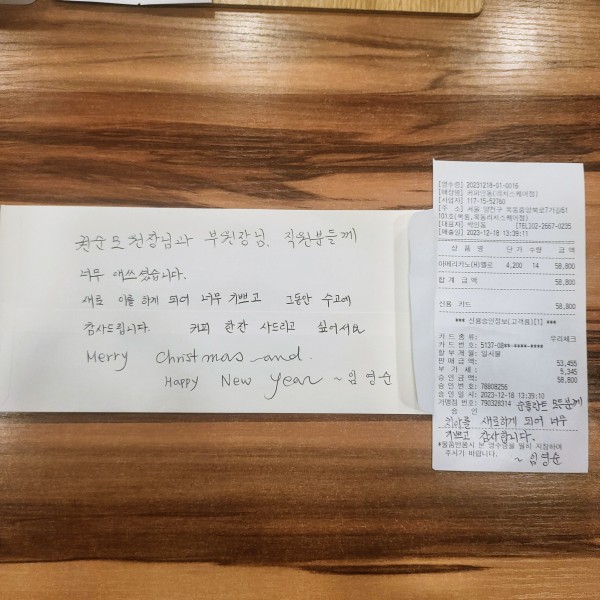 원장님과 부원장님, 직원분들께
너무 애쓰셨습니다.
새로 이를 하게 되어 너무 기쁘고 그동안 수고에
감사드립니다. 커피 한잔 사드리고 싶어서요
Merry Christmas and.
Happy New Year ~임영순
[영수증] 20231218-01-0016
[매장명] 커피만동(리치스퀘어점)
[사업자] 117-15-52780
[주 소] 서울 양천구 목동중앙북로7가길61
101호(목동,목동리치스퀘어점)
[대표자] [TEL]02-2667-0235
[매출일] 2023-12-18 13:39:11
상 품 명 단 가 수량 금 액
아메리카노(H)옐로 4,200 14 58,800
합 계 금 액 58,800
신용 카드 58,800
*** 신용승인정보(고객용)[1] ***
카 드 종 류: 우리체크
카 드 번 호: 5137-08**-****-****
할 부 개 월: 일시불
판 매 금 액: 53,455
부 가 세: 5,345
승 인 금 액: 58,800
승 인 번 호: 78808256
승 인 일 시: 2023-12-18 13:39:10
가맹점 번호: 790328314 순플란트 모든분께
승 인
치아를 새로하게 되어 너무
기쁘고 감사합니다.
*물품반품시 본 영수증을 필히 지참하여
주시기 바랍니다. ~임영순